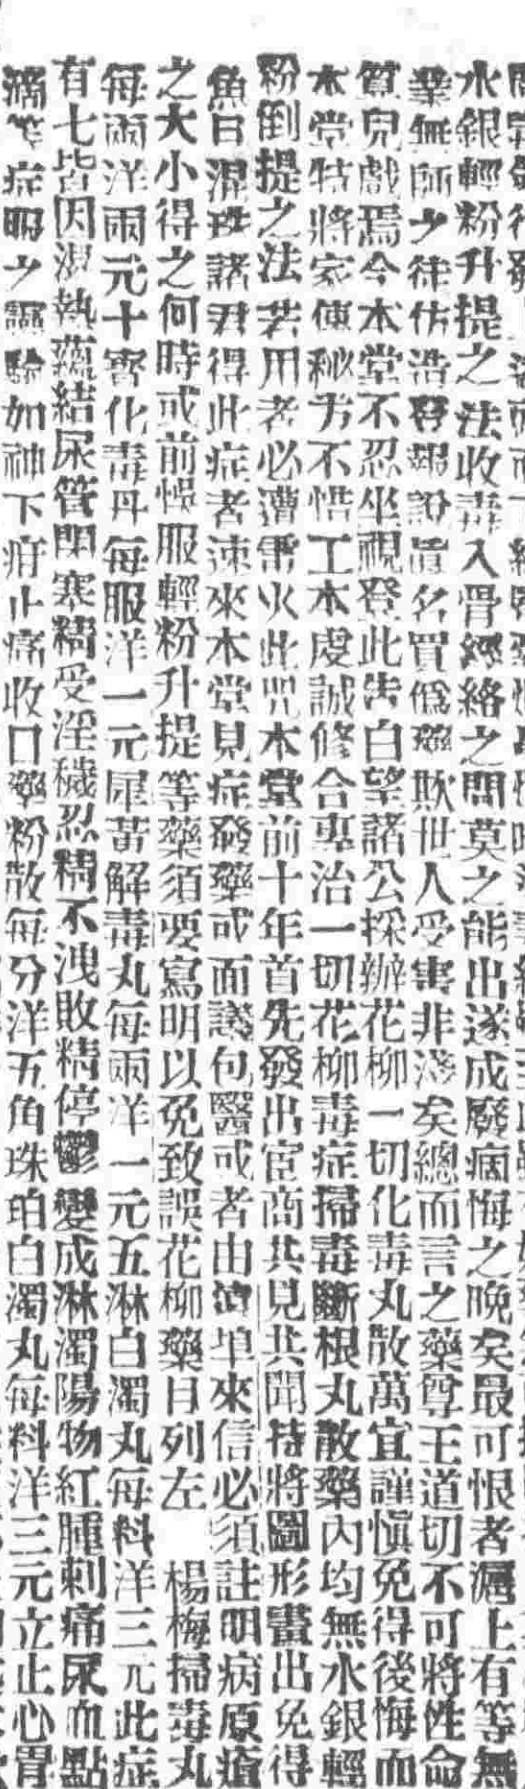 水銀輕粉升提之法收毒入骨經絡之間莫之能出遂成廢痼悔之晚矣最可恨者滬上有等無
業無師之徒仿浩登報說置名買僞藥欺世人受害非淺矣總而言之藥尊王道切不可將性命
質兒戲焉今本堂不忍坐視登此告白望諸公採辦花柳一切化毒丸散萬宜謹愼免得後悔而
本堂特將家傳秘方不惜工本虔誠修合專治一切花柳毒症掃毒斷根丸散藥內均無水銀輕
粉倒提之法若用者必遭雷火此咒本堂前十年首先發出宦商共見共聞特將圖形畫出免得
魚目混珠諸君得此症者速來本堂見症發藥或面議包醫或者由埠來信必須註明病原瘡
之大小得之何時或前悞服輕粉升提等藥須要寫明以免致誤花柳藥目列左　楊梅掃毒丸
每兩洋兩元十寳化毒丹每服洋一元犀黃解毒丸每兩洋一元五淋白濁丸每料洋三元此症
有七皆因濕熱蘊結尿管閉塞精受淫穢忍精不洩敗精停鬱變成淋濁陽物紅腫刺痛尿血點
滴等症服之靈騐如神下疳止痛收口藥粉散每分洋五角珠珀白濁丸每料洋三元立止心胃